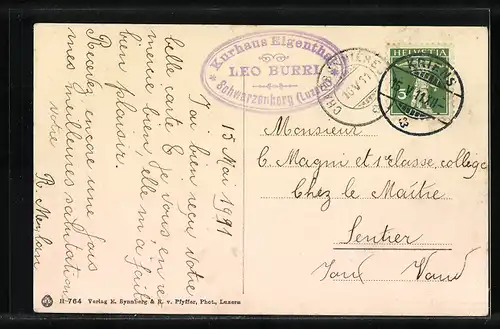 15 Mai 1911
J'ai bien reçu votre
belle carte & je vous en re
mercie bien, elle m'a fait
bien plaisir.
Recevez encore une fois
mes meilleures salutations
votre
R. Meylan
Kurhaus Eigenthal
LEO BURRI
Schwarzenberg (Luzern)
HELVETIA
5
KRIENS
Monsieur
C. Magni et 1re classe, collège
Chez le Maître
Sentier
Joux Vaud
H-764 Verlag E. Synnberg & R. v. Pfyffer, Phot., Luzern